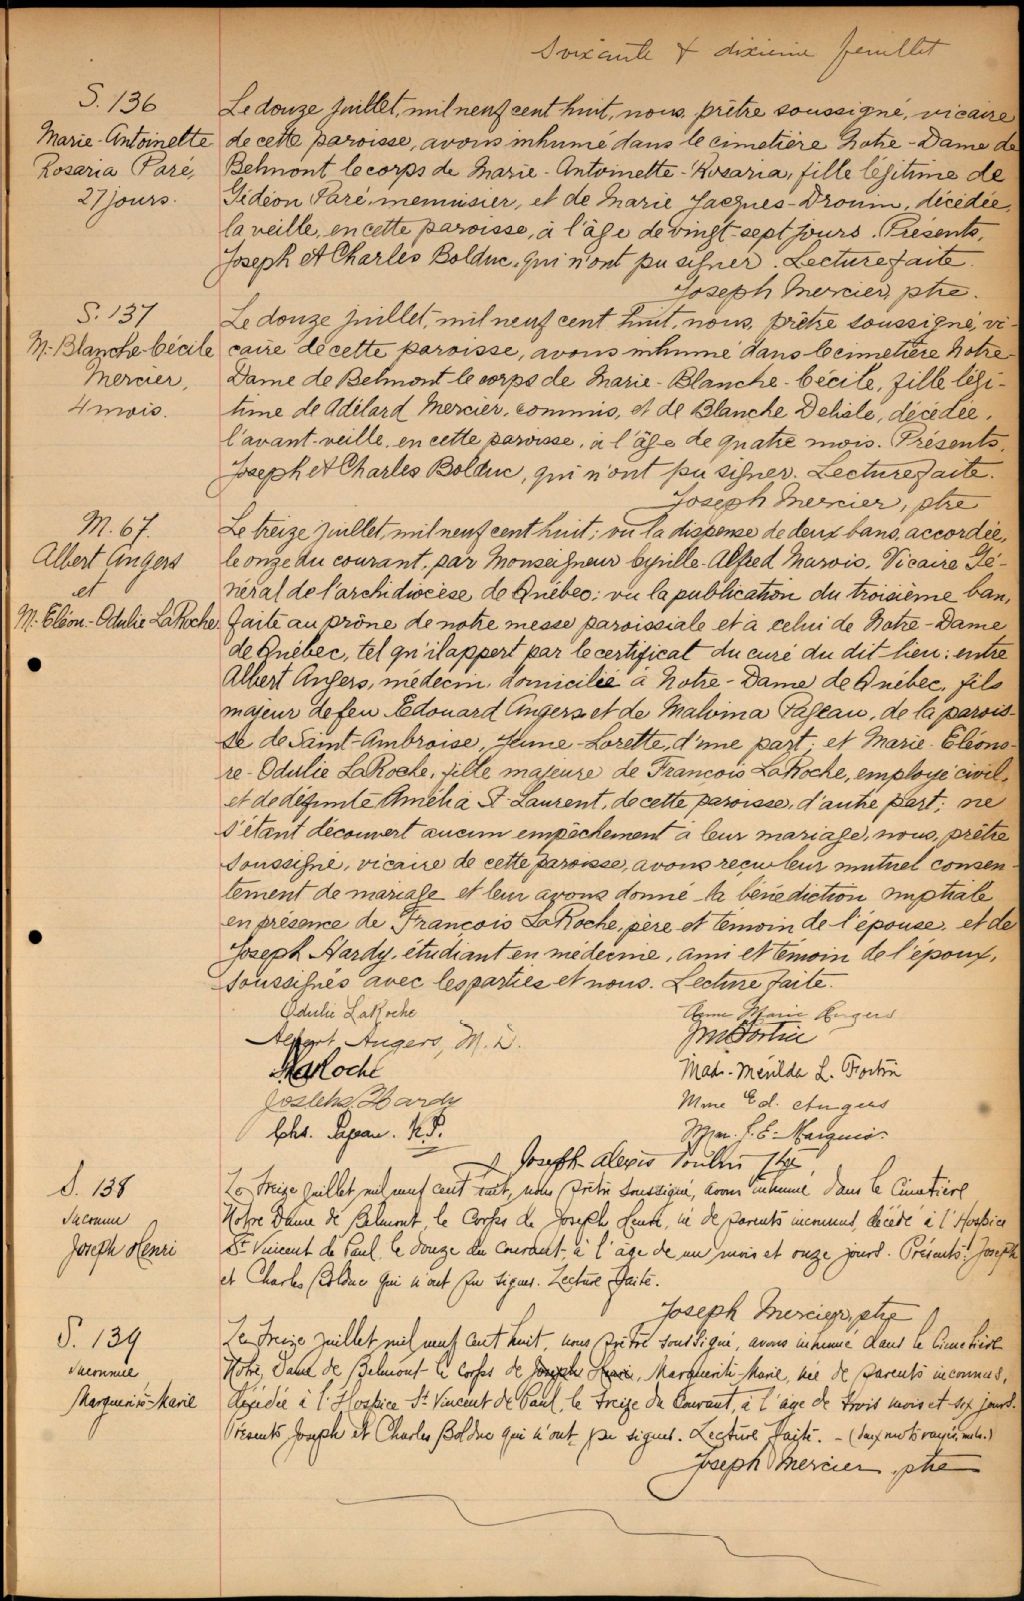 Soixante & dixième feuillet
S. 136
Marie-Antoinette
Rosaria Paré,
27 jours.
Le douze juillet, mil neuf cent huit, nous, prêtre soussigné, vicaire
de cette paroisse, avons inhumé dans le cimetière Notre-Dame de
Belmont le corps de Marie-Antoinette-Rosaria, fille légitime de
Gédéon Paré, menuisier, et de Marie Jacques-Drouin, décédée,
la veille, en cette paroisse, à l'âge de vingt-sept jours. Présents,
Joseph et Charles Bolduc, qui n'ont pu signer. Lecture faite.
Joseph Mercier, ptre.
S. 137
M.-Blanche-Cécile
Mercier,
4 mois.
Le douze juillet, mil neuf cent huit, nous, prêtre soussigné, vi-
caire de cette paroisse, avons inhumé dans le cimetière Notre-
Dame de Belmont le corps de Marie-Blanche-Cécile, fille légi-
time de Adélard Mercier, commis, et de Blanche Delisle, décédée,
l'avant-veille, en cette paroisse, à l'âge de quatre mois. Présents,
Joseph et Charles Bolduc, qui n'ont pu signer. Lecture faite.
Joseph Mercier, ptre
M. 67.
Albert Angers
et
M.-Eléon.-Odulie LaRoche.
Le treize juillet, mil neuf cent huit; vu la dispense de deux bans, accordée,
le onze du courant, par Monseigneur Cyrille-Alfred Marois, Vicaire Gé-
néral de l'archidiocèse de Québec; vu la publication du troisième ban,
faite au prône de notre messe paroissiale et à celui de Notre-Dame
de Québec, tel qu'il appert par le certificat du curé du dit lieu: entre
Albert Angers, médecin, domicilié à Notre-Dame de Québec, fils
majeur de feu Edouard Angers et de Malvina Pageau, de la parois-
se de Saint-Ambroise, Jeune-Lorette, d'une part; et Marie-Eléono-
re-Odulie LaRoche, fille majeure de François LaRoche, employé civil,
et de défunte Amélia St-Laurent, de cette paroisse, d'autre part; ne
s'étant découvert aucun empêchement à leur mariage, nous, prêtre
soussigné, vicaire de cette paroisse, avons reçu leur mutuel consen-
tement de mariage et leur avons donné la bénédiction nuptiale
en présence de François LaRoche, père et témoin de l'épouse, et de
Joseph Hardy, étudiant en médecine, ami et témoin de l'époux,
soussignés avec les parties et nous. Lecture faite.
Odulie LaRoche
Albert Angers, M.D.
LaRoche
Joseph Hardy
Chs. Pageau. N.P.
Anne Marie Angers
JM Fortin
Mad.- Mérilda L. Fortin
Mme Ed. Angers
Mme. J. E. Marquis.
Joseph Alexis Poulin Ptre
S. 138
Inconnu
Joseph Henri
Le treize juillet mil neuf cent huit, nous prêtre soussigné, avons inhumé dans le Cimetière
Notre Dame de Belmont, le corps de Joseph Henri, né de parents inconnus, décédé à l'Hospice
St. Vincent de Paul, le douze du courant à l'âge de un mois et onze jours. Présents: Joseph
et Charles Bolduc qui n'ont pu signer. Lecture faite.
Joseph Mercier, ptre
S. 139
Inconnue
Marguerite-Marie
Le treize juillet mil neuf cent huit, nous prêtre soussigné, avons inhumé dans le Cimetière
Notre Dame de Belmont le corps de Joseph Henri, Marguerite-Marie, née de parents inconnus,
décédée à l'Hospice St. Vincent de Paul, le treize du courant, à l'âge de trois mois et six jours.
Présents Joseph et Charles Bolduc qui n'ont pu signer. Lecture faite. - (deux mots rayés, nuls.)
Joseph Mercier, ptre